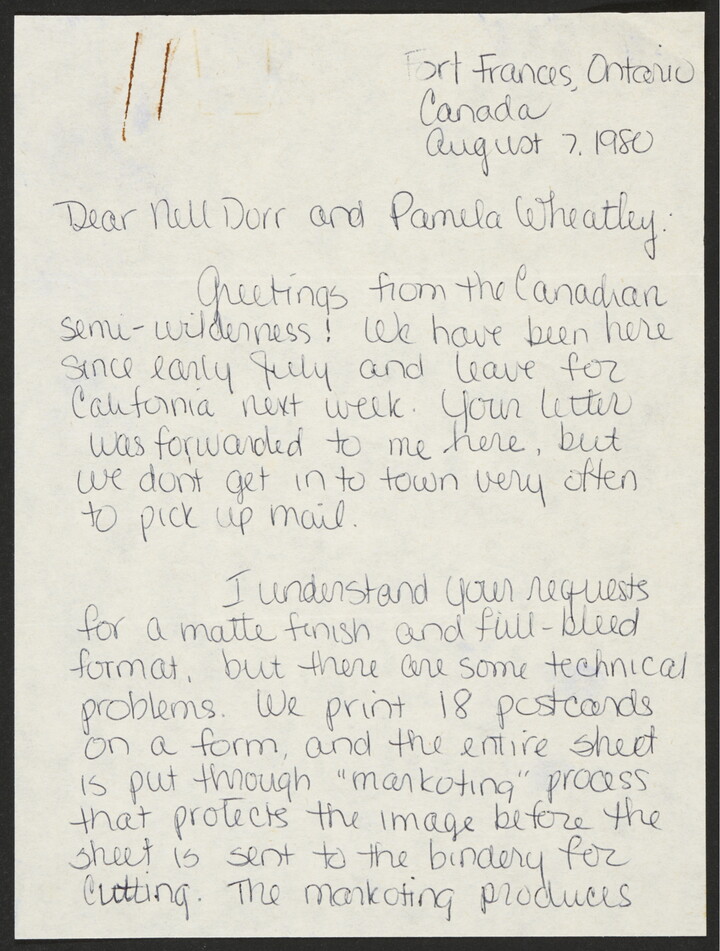 Fort Frances, Ontario
Canada
August 7, 1980
Dear Nell Dorr and Pamela Wheatley:
Greetings from the Canadian
semi-wilderness! We have been here
since early July and leave for
California next week. Your letter
was forwarded to me here, but
we dont get in to town very often
to pick up mail.
I understand your requests
for a matte finish and full-bleed
format, but there are some technical
problems. We print 18 postcards
on a form, and the entire sheet
is put through "markoting" process
that protects the image before the
sheet is sent to the bindery for
cutting. The markoting produces